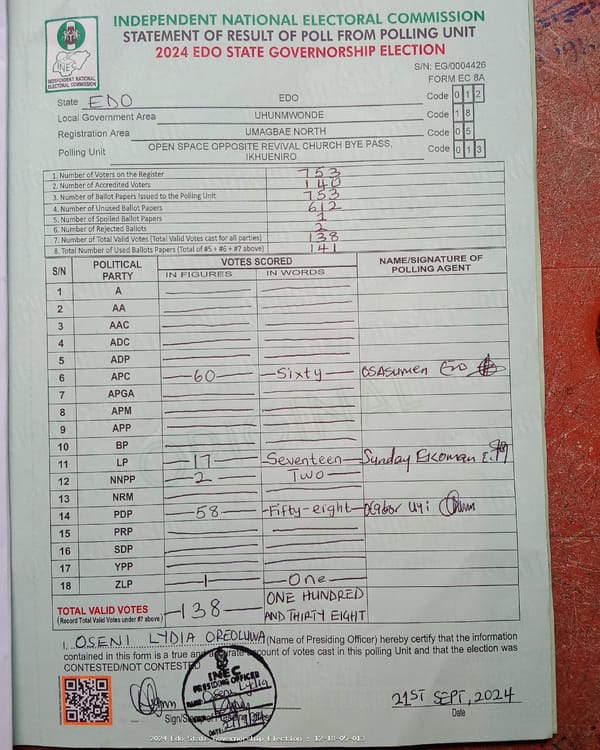 INDEPENDENT NATIONAL ELECTORAL COMMISSION
STATEMENT OF RESULT OF POLL FROM POLLING UNIT
2024 EDO STATE GOVERNORSHIP ELECTION
INEC
INDEPENDENT NATIONAL
ELECTORAL COMMISSION
S/N: EG/0004426
FORM EC 8A
State EDO EDO Code 0 1 2
Local Government Area UHUNMWONDE Code 1 8
Registration Area UMAGBAE NORTH Code 0 5
Polling Unit OPEN SPACE OPPOSITE REVIVAL CHURCH BYE PASS, IKHUENIRO Code 0 1 3
1. Number of Voters on the Register 753
2. Number of Accredited Voters 140
3. Number of Ballot Papers Issued to the Polling Unit 753
4. Number of Unused Ballot Papers 612
5. Number of Spoiled Ballot Papers 1
6. Number of Rejected Ballots 2
7. Number of Total Valid Votes (Total Valid Votes cast for all parties) 138
8. Total Number of Used Ballots Papers (Total of #5 + #6 + #7 above) 141
S/N POLITICAL PARTY VOTES SCORED NAME/SIGNATURE OF POLLING AGENT
IN FIGURES IN WORDS
1 A
2 AA
3 AAC
4 ADC
5 ADP
6 APC 60 Sixty OSASUMEN
7 APGA
8 APM
9 APP
10 BP
11 LP 17 Seventeen Sunday
12 NNPP 2 Two
13 NRM
14 PDP 58 Fifty-eight
15 PRP
16 SDP
17 YPP
18 ZLP 1 One
TOTAL VALID VOTES 138 ONE HUNDRED AND THIRTY EIGHT
(Record Total Valid Votes under #7 above)
I, OSENI LYDIA OREOLUWA (Name of Presiding Officer) hereby certify that the information
contained in this form is a true and accurate account of votes cast in this polling Unit and that the election was
CONTESTED/NOT CONTESTED
INEC
PRESIDING OFFICER
NAME: Oseni Lydia
SIGN:
DATE: 21/9/24
21ST SEPT, 2024
Date
2024 Edo State Governorship Election : 12-18-05-013